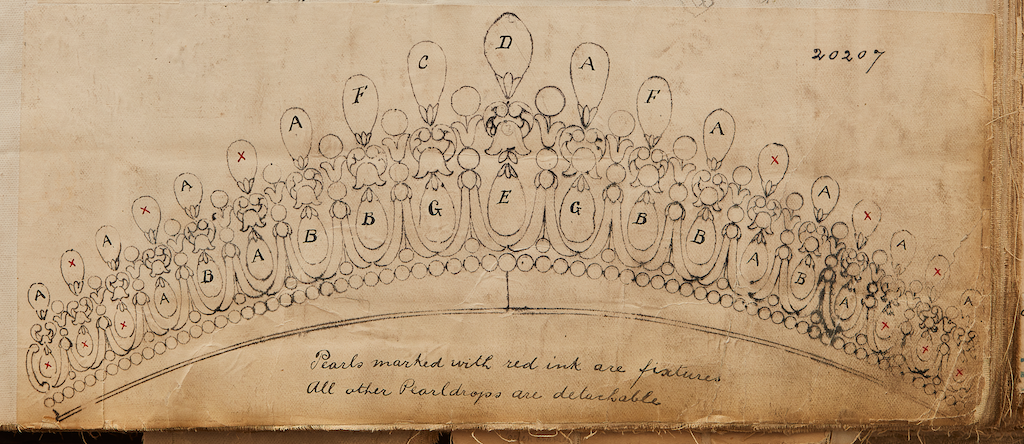 20207
D
C A
F F
A A
x x
A A
x x
A A
x x
A A
E
G G
B B
B B
A A
B B
A A
x x
x x
x x
Pearls marked with red ink are fixtures
All other Pearldrops are detachable